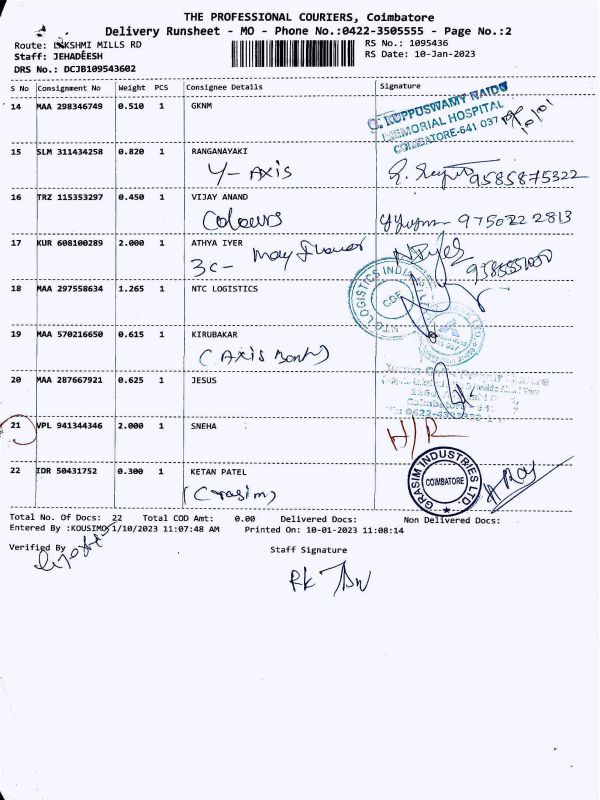 THE PROFESSIONAL COURIERS, Coimbatore
Delivery Runsheet - MO - Phone No.:0422-3505555 - Page No.:2
Route: LAKSHMI MILLS RD
RS No.: 1095436
Staff: JEHADEESH
RS Date: 10-Jan-2023
DRS No.: DCJB109543602
S No Consignment No Weight PCS Consignee Details Signature
14 MAA 298346749 0.510 1 GKNM
G. KUPPUSWAMY NAIDU
MEMORIAL HOSPITAL
COIMBATORE-641 037
15 SLM 311434258 0.820 1 RANGANAYAKI
Y- AXIS
9585875322
16 TRZ 115353297 0.450 1 VIJAY ANAND
Colours
9750222813
17 KUR 608100289 2.000 1 ATHYA IYER
3C- May flower
18 MAA 297558634 1.265 1 NTC LOGISTICS
NTC LOGISTICS INDIA
19 MAA 570216650 0.615 1 KIRUBAKAR
(Axis Bank)
20 MAA 287667921 0.625 1 JESUS
21 VPL 941344346 2.000 1 SNEHA
H/R
22 IDR 50431752 0.300 1 KETAN PATEL
(Grasim)
GRASIM INDUSTRIES LTD.
COIMBATORE
Total No. Of Docs: 22 Total COD Amt: 0.00 Delivered Docs: Non Delivered Docs:
Entered By :KOUSIMO 1/10/2023 11:07:48 AM Printed On: 10-01-2023 11:08:14
Verified By
Staff Signature